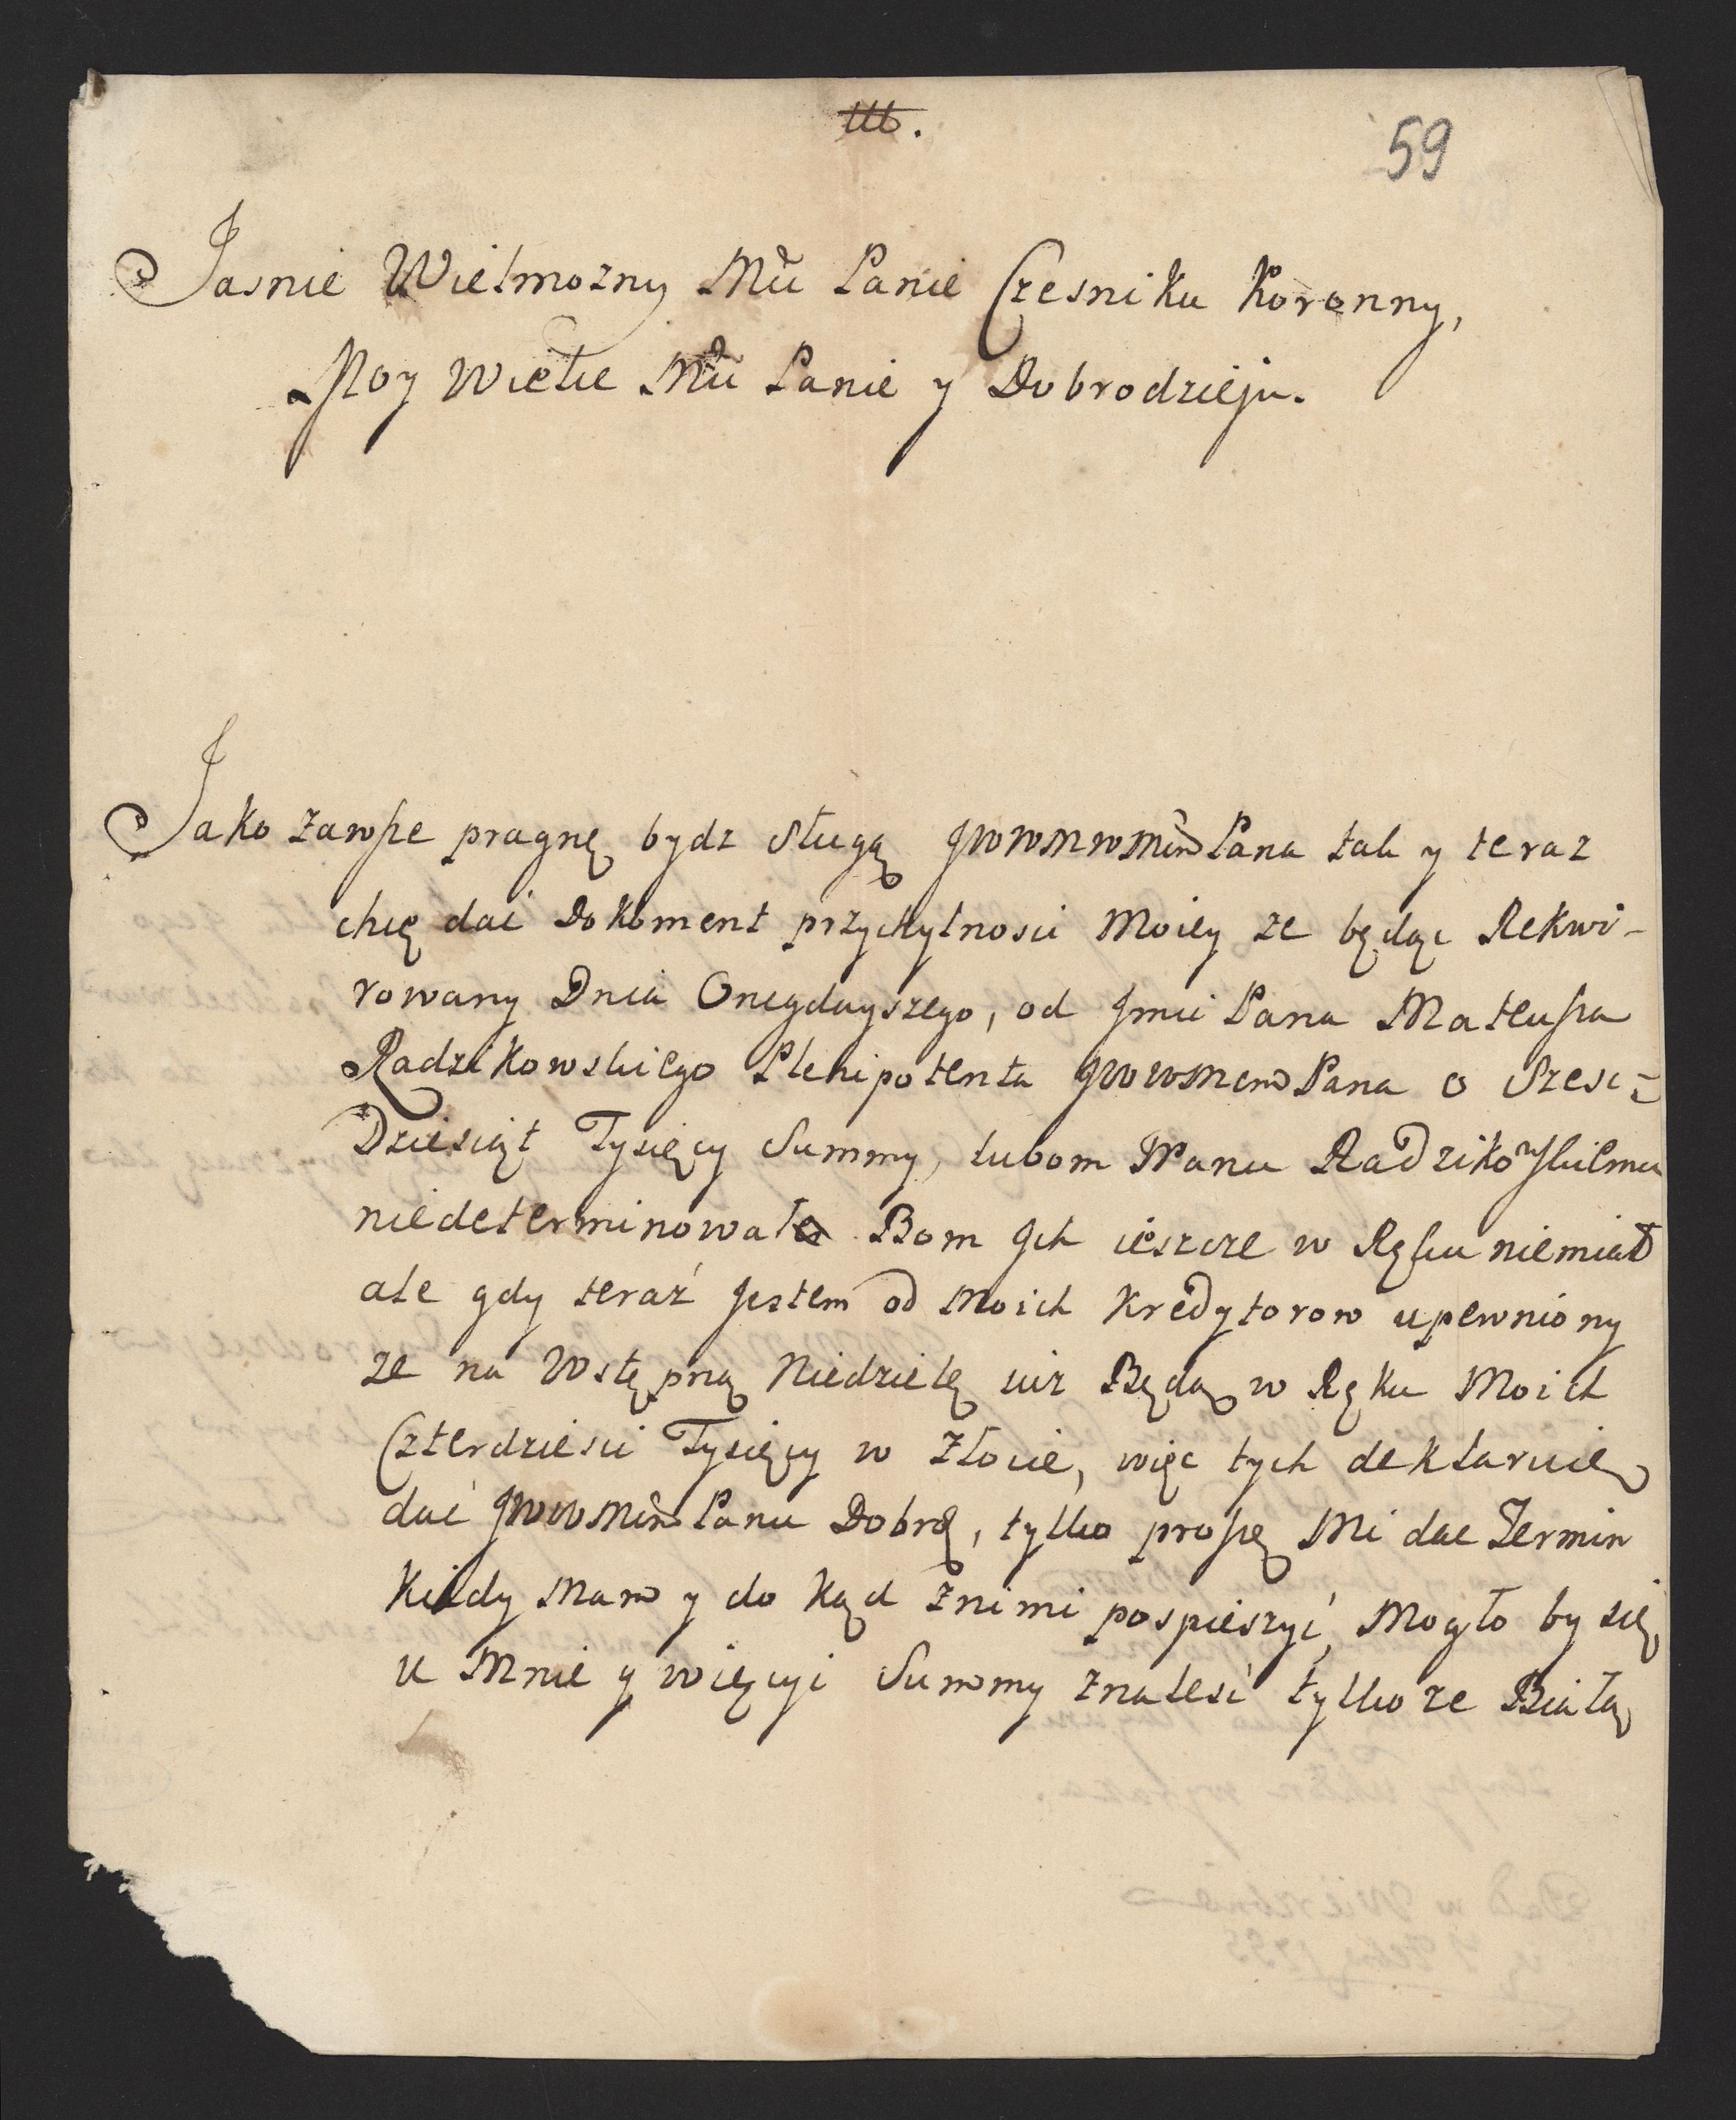 59
Jasnie Wielmozny Mci Panie Czesniku Koronny,
Moy Wielce Mci Panie y Dobrodzieju.
Jako zawsze pragnę bydz sługą JWWMWMci Pana tak y teraz
chcę dać Dokoment przychylnosci Moiey ze będąc Rekwi-
rowany Dnia Onegdayszego, od Jmci Pana Mateusza
Radzikowskiego Plenipotenta JWWMci Pana o Szesc=
Dziesiąt Tysięcy Summy, lubom Panu Radzikowskiemu
niedeterminował Bom Jch ieszcze w Ręku niemiał
ale gdy teraź Jestem od Moich Kredytorow upewniony
ze na Wstępną Niedzielę iuz Będą w Ręku Moich
Czterdziesci Tysięcy w Złocie, więc tych deklaruię
dać JWWMci Panu Dobro, tylko proszę Mi dac Termin
Kiedy Mam y do kąd znimi pospieszyć, Mogło by się
u Mnie y więcyi Summy znalesć tylko ze Białą